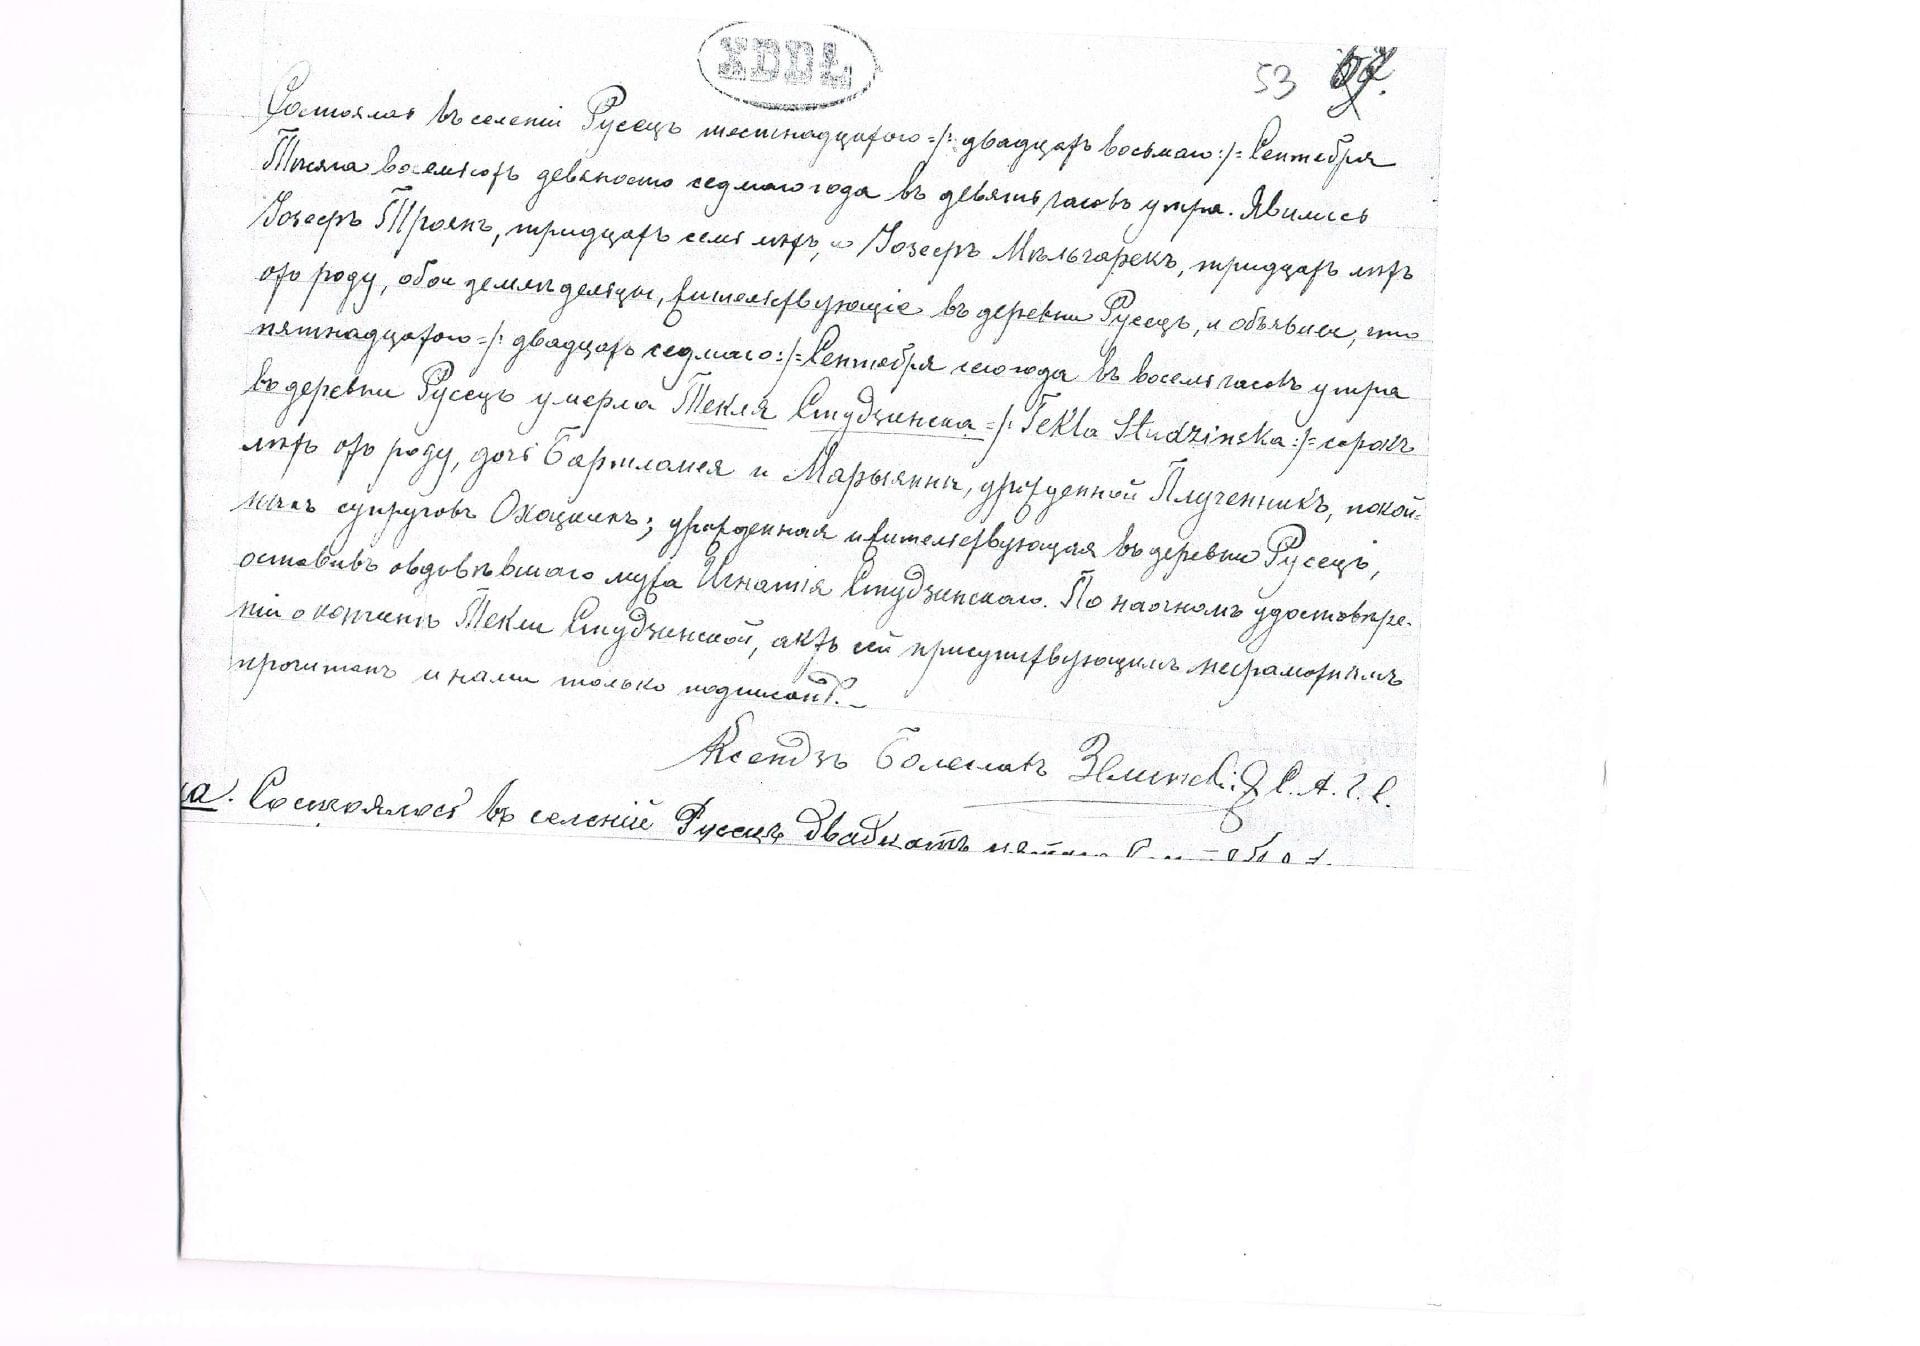 53
Состоялось въ селеніи Русецъ шестнадцатого =/: двадцать восьмаго :/= Сентября
Тысяча восемьсотъ девяносто седмаго года въ девять часовъ утра. Явились
Іозефъ Троянъ, тридцать семь лѣтъ, и Іозефъ Мѣльчарекъ, тридцать лѣтъ
отъ роду, обои земледѣльцы, жительствующіе въ деревни Русецъ, и объявили, что
пятнадцатого =/: двадцать седмаго :/= Сентября сего года въ восемь часовъ утра
въ деревни Русецъ умерла Текля Студзинска =/: Tekla Studzinska :/= сорокъ
лѣтъ отъ роду, дочь Бартломея и Марыянны, урожденной Плученникъ, покой=
ныхъ супруговъ Охоцкихъ; урожденная и жительствующая въ деревни Русецъ,
оставивъ овдовѣвшаго мужа Игнатія Студзинскаго. По наочномъ удостовѣре-
ніи о кончинѣ Текли Студзинской, актъ сей присутствующимъ неграмотнымъ
прочитанъ и нами только подписанъ.
Ксендзъ Болеславъ С. А. Г. С.
Состоялось въ селеніи Русецъ двадцать